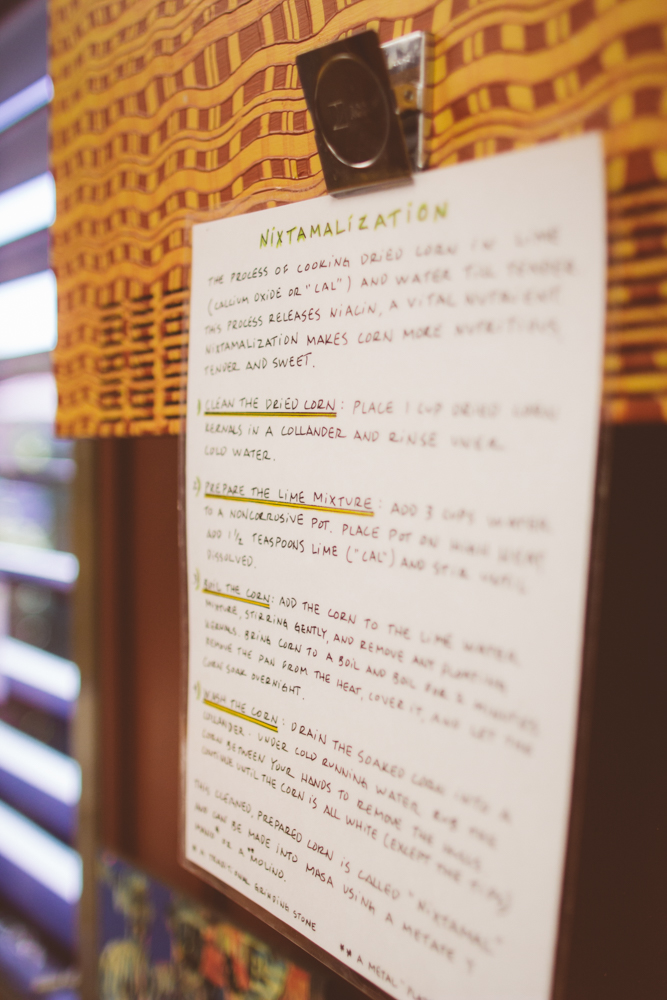 NIXTAMALIZATION
THE PROCESS OF COOKING DRIED CORN IN LIME
(CALCIUM OXIDE OR "CAL") AND WATER TILL TENDER
THIS PROCESS RELEASES NIACIN, A VITAL NUTRIENT
NIXTAMALIZATION MAKES CORN MORE NUTRITIOUS,
TENDER AND SWEET.
CLEAN THE DRIED CORN: PLACE 1 CUP DRIED CORN
KERNALS IN A COLLANDER AND RINSE OVER
COLD WATER.
PREPARE THE LIME MIXTURE: ADD 3 CUPS WATER
TO A NONCORROSIVE POT. PLACE POT ON HIGH HEAT
ADD 1½ TEASPOONS LIME ("CAL") AND STIR UNTIL
DISSOLVED.
BOIL THE CORN: ADD THE CORN TO THE LIME WATER
MIXTURE, STIRRING GENTLY, AND REMOVE ANY FLOATING
KERNALS. BRING CORN TO A BOIL AND BOIL FOR 2 MINUTES
REMOVE THE PAN FROM THE HEAT, COVER IT, AND LET THE
CORN SOAK OVERNIGHT.
WASH THE CORN: DRAIN THE SOAKED CORN INTO A
COLLANDER. UNDER COLD RUNNING WATER RUB THE
CORN BETWEEN YOUR HANDS TO REMOVE THE HULLS.
CONTINUE UNTIL THE CORN IS ALL WHITE (EXCEPT THE TIPS)
THIS CLEANED, PREPARED CORN IS CALLED "NIXTAMAL"
AND CAN BE MADE INTO MASA USING A METATE Y
MANO* OR A **MOLINO.
* A TRADITIONAL GRINDING STONE
** A METAL